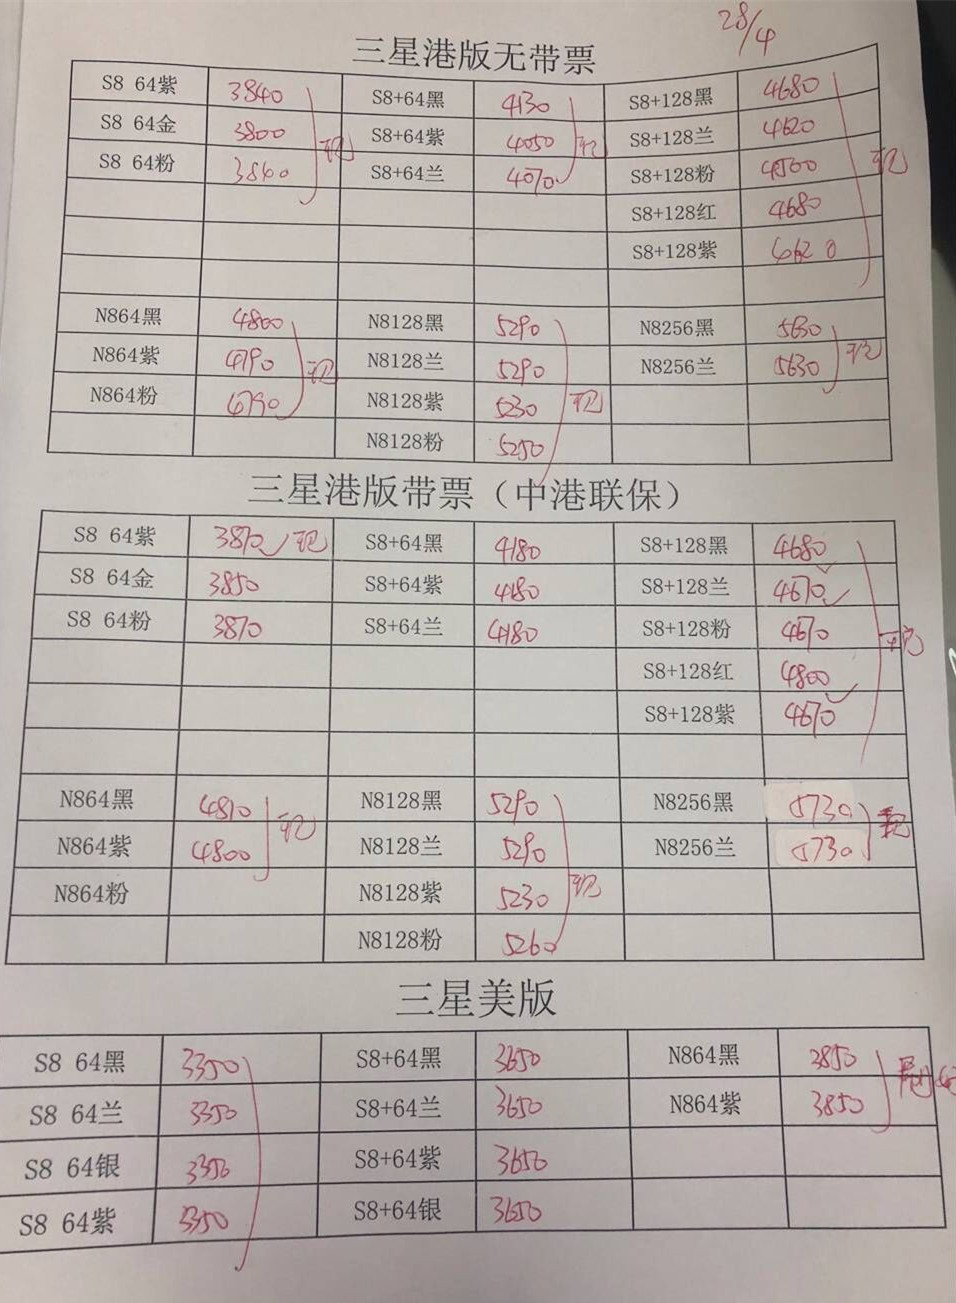 28/4
三星港版无带票
S8 64紫 3840 S8+64黑 4130 S8+128黑 4680
S8 64金 3800 S8+64紫 4050 S8+128兰 4620
S8 64粉 3860 S8+64兰 4070 S8+128粉 4500
S8+128红 4680
S8+128紫
N864黑 4800 N8128黑 5290 N8256黑 5630
N864紫 4790 N8128兰 5290 N8256兰 5630
N864粉 N8128紫 5230
N8128粉 5250
三星港版带票（中港联保）
S8 64紫 3870 现 S8+64黑 4180 S8+128黑 4680
S8 64金 3850 S8+64紫 4180 S8+128兰 4670
S8 64粉 3870 S8+64兰 4180 S8+128粉 4670
S8+128红 4800
S8+128紫 4670
N864黑 4810 N8128黑 5290 N8256黑 5730
N864紫 4800 N8128兰 5290 N8256兰 5730
N864粉 N8128紫 5230
N8128粉 5260
三星美版
S8 64黑 3350 S8+64黑 3650 N864黑 3850
S8 64兰 3350 S8+64兰 3650 N864紫 3850
S8 64银 3350 S8+64紫 3650
S8 64紫 3350 S8+64银 3650